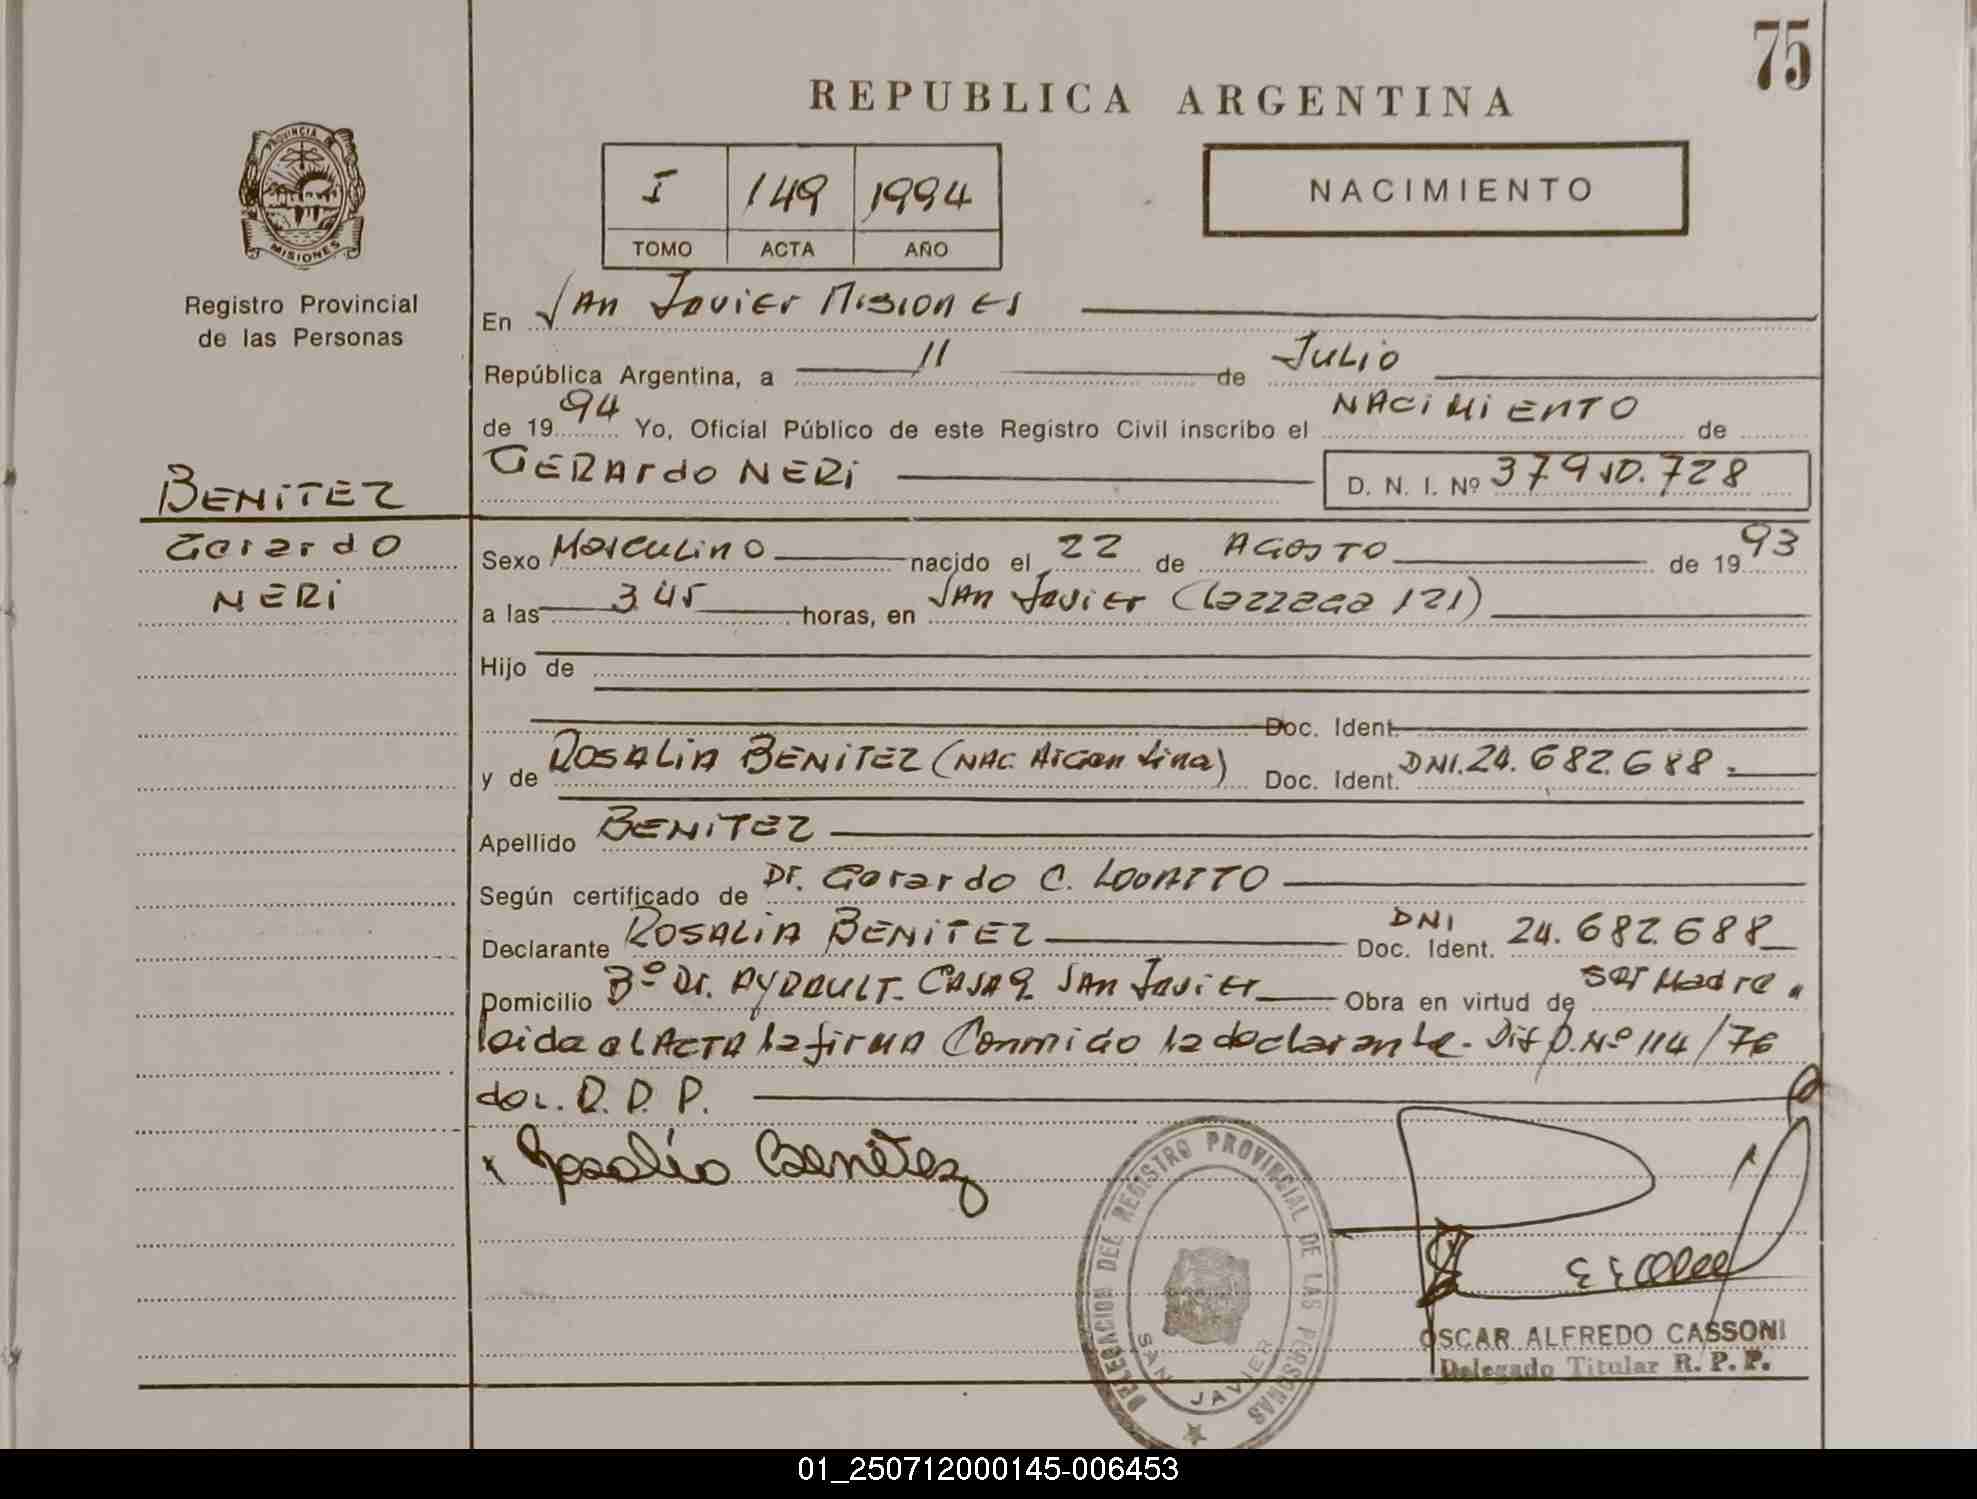 75
REPUBLICA ARGENTINA
PROVINCIA DE
MISIONES
Registro Provincial
de las Personas
I 149 1994
TOMO ACTA AÑO
NACIMIENTO
En San Javier Misiones
República Argentina, a 11 de Julio
de 1994 Yo, Oficial Público de este Registro Civil inscribo el NACIMIENTO de
GERArdo NERi D. N. I. Nº 37910.728
BENiTEZ
Gerardo
NERi
Sexo Masculino nacido el 22 de AGOSTO de 1993
a las 3 45 horas, en San Javier (Lazzaga 121)
Hijo de
Doc. Ident.
y de ROSALiA BENiTEZ (NAC. Argentina) Doc. Ident. DNI. 24.682.688
Apellido BENiTEZ
Según certificado de Dr. Gerardo C. LODATTO
Declarante ROSALiA BENiTEZ Doc. Ident. DNI 24.682.688
Domicilio Bº Dr. AYRAULT. CASA 9 San Javier Obra en virtud de ser Madre.
leida el ACTA la firma Conmigo la declarante. Disp. Nº 114/76
del R. P. P.
x Rosalia Benitez
DELEGACION DEL REGISTRO PROVINCIAL DE LAS PERSONAS
SAN JAVIER
OSCAR ALFREDO CASSONI
Delegado Titular R. P. P.
01_250712000145-006453